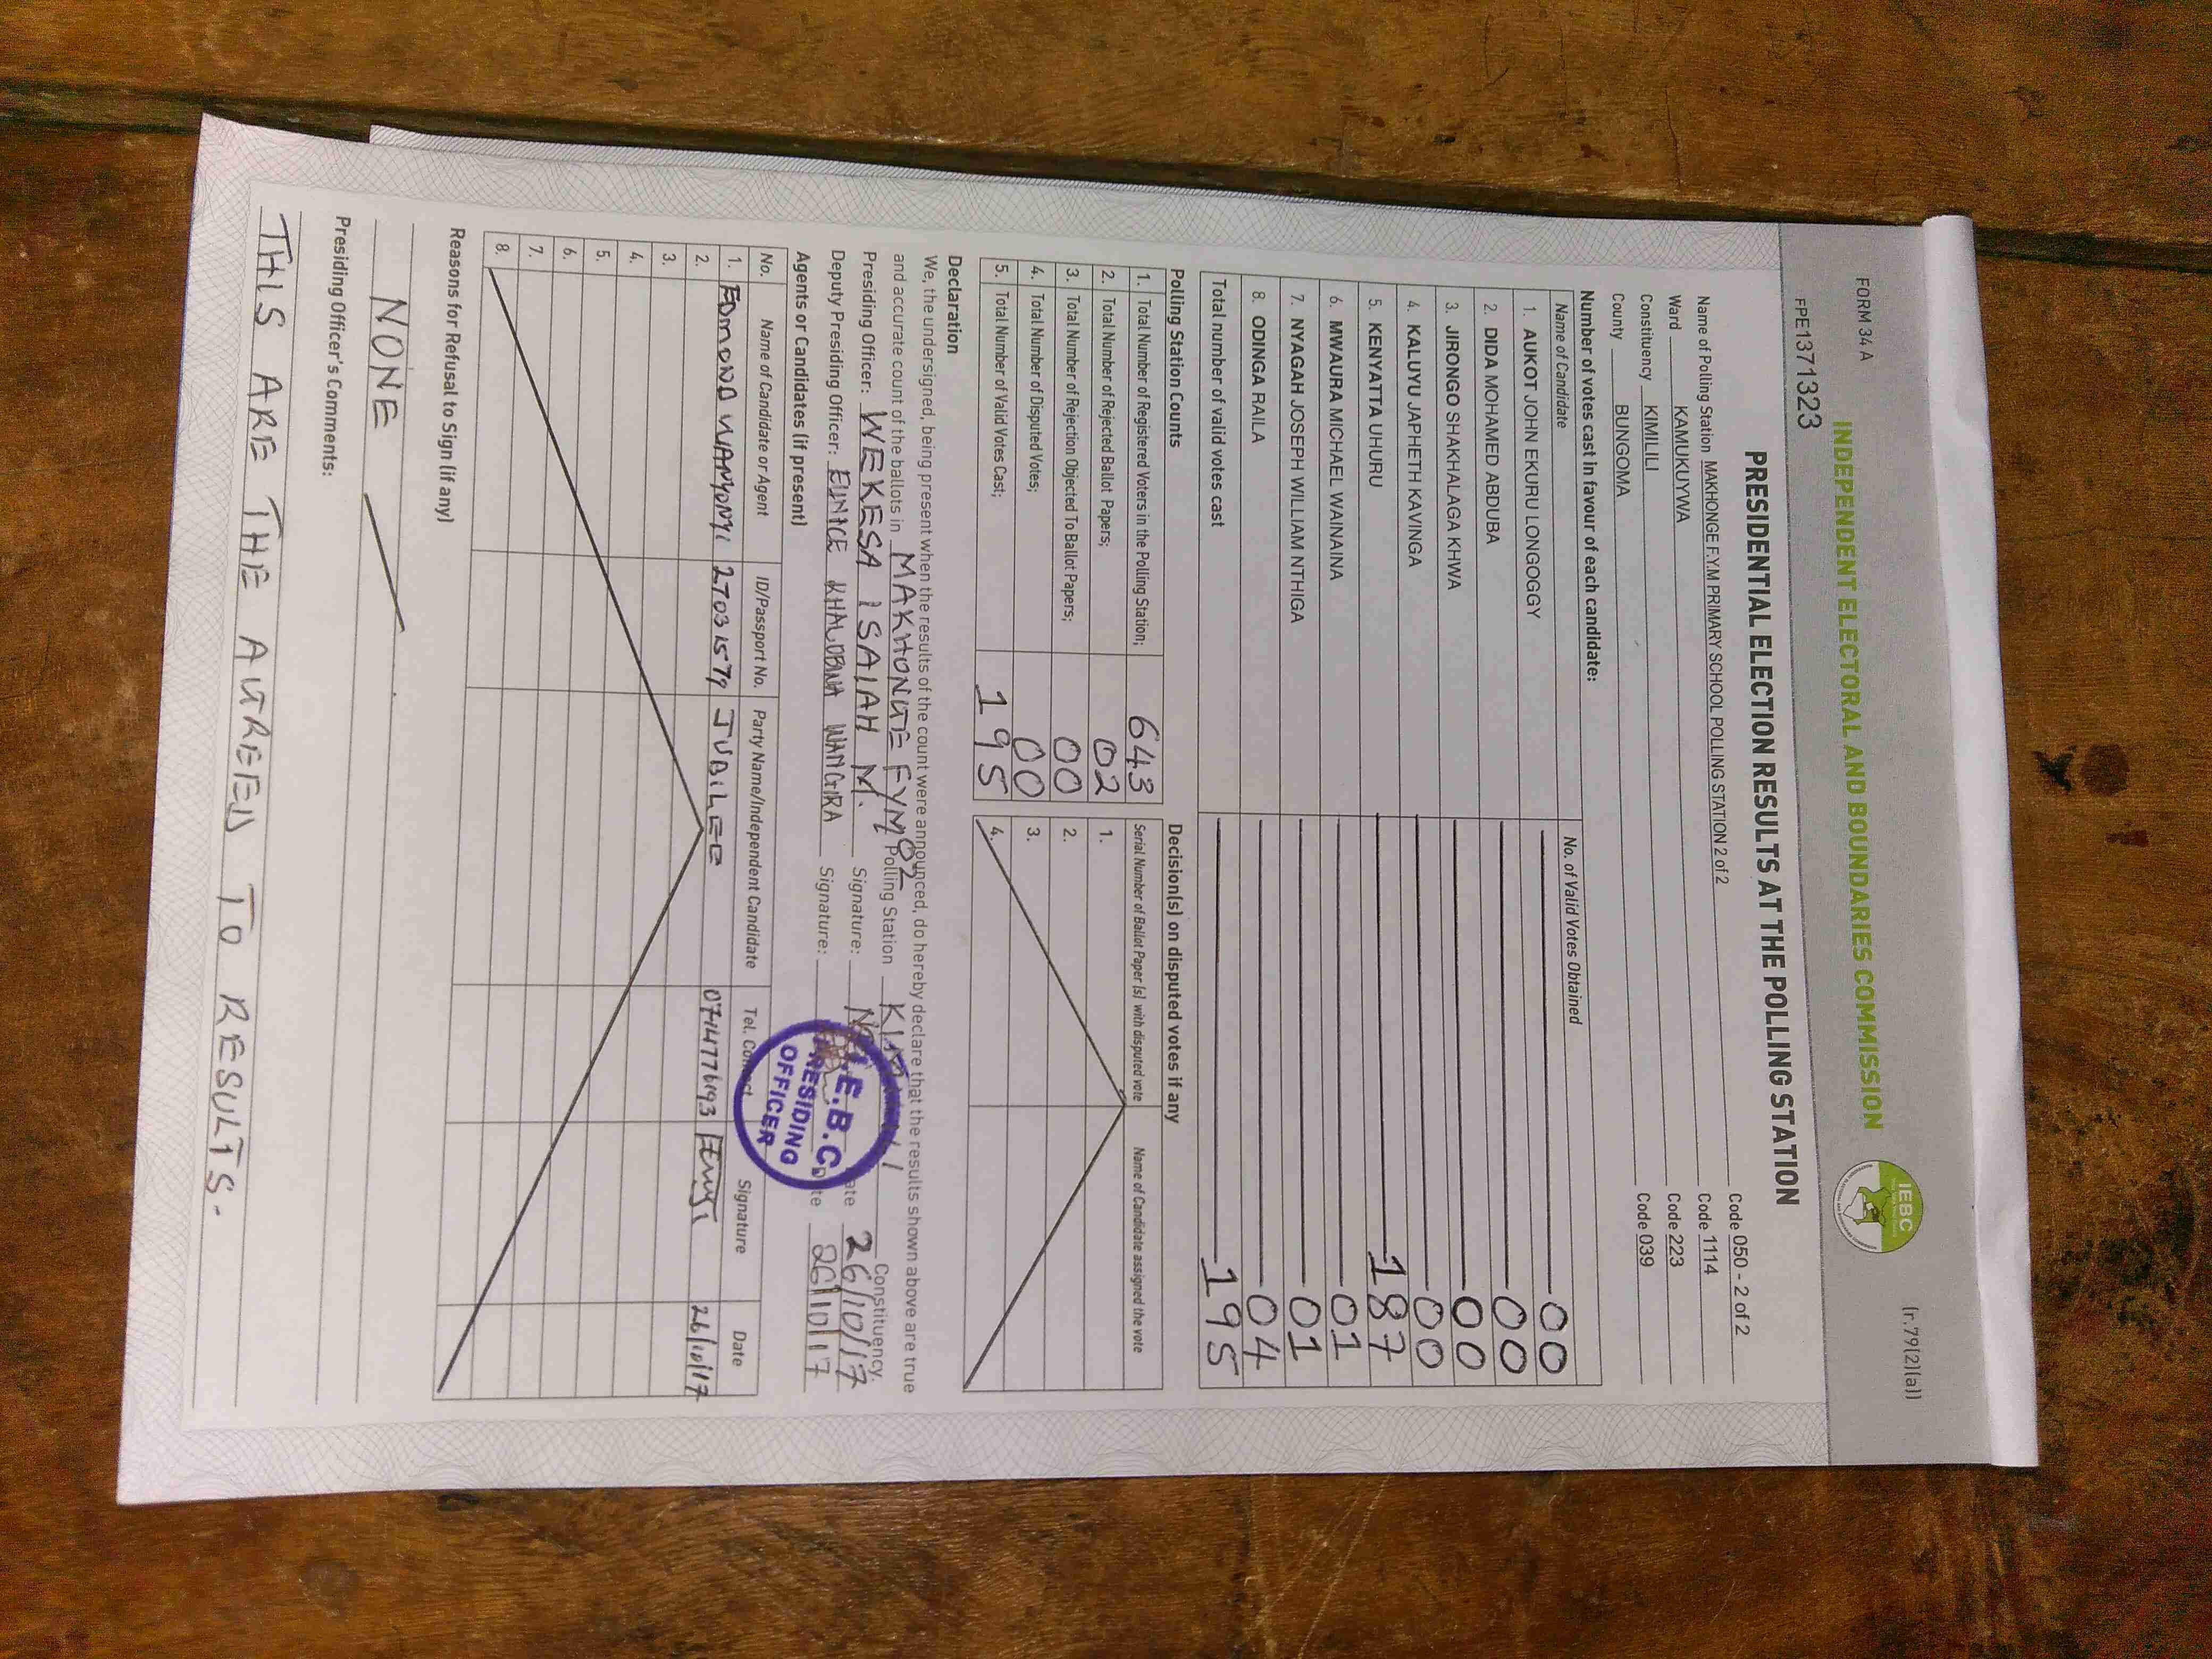 FORM 34 A
(r.79(2)(a))
INDEPENDENT ELECTORAL AND BOUNDARIES COMMISSION
IEBC
FPE1371323
PRESIDENTIAL ELECTION RESULTS AT THE POLLING STATION
Name of Polling Station MAKHONGE F.Y.M PRIMARY SCHOOL POLLING STATION 2 of 2 Code 050 - 2 of 2
Ward KAMUKUYWA Code 1114
Constituency KIMILILI Code 223
County BUNGOMA Code 039
Number of votes cast in favour of each candidate:
Name of Candidate No. of Valid Votes Obtained
1. AUKOT JOHN EKURU LONGOGGY 00
2. DIDA MOHAMED ABDUBA 00
3. JIRONGO SHAKHALAGA KHWA 00
4. KALUYU JAPHETH KAVINGA 00
5. KENYATTA UHURU 187
6. MWAURA MICHAEL WAINAINA 01
7. NYAGAH JOSEPH WILLIAM NTHIGA 01
8. ODINGA RAILA 04
Total number of valid votes cast 195
Polling Station Counts
1. Total Number of Registered Voters in the Polling Station; 643
2. Total Number of Rejected Ballot Papers; 02
3. Total Number of Rejection Objected To Ballot Papers; 00
4. Total Number of Disputed Votes; 00
5. Total Number of Valid Votes Cast; 195
Decision(s) on disputed votes if any
Serial Number of Ballot Paper (s) with disputed vote Name of Candidate assigned the vote
1.
2.
3.
4.
Declaration
We, the undersigned, being present when the results of the count were announced, do hereby declare that the results shown above are true
and accurate count of the ballots in MAKHONGE FYM 02 Polling Station Constituency.
Presiding Officer: WEKESA ISAIAH M. Signature: Date 26/10/17
Deputy Presiding Officer: EUNICE KHALOBWA WANGIRA Signature: Date 26/10/17
I.E.B.C
PRESIDING
OFFICER
Agents or Candidates (if present)
No. Name of Candidate or Agent ID/Passport No. Party Name/Independent Candidate Tel. Contact Signature Date
1. EDMOND WANYONYI 27031579 JUBILEE 0714776193 26/10/17
2.
3.
4.
5.
6.
7.
8.
Reasons for Refusal to Sign (if any)
NONE
Presiding Officer's Comments:
THIS ARE THE AGREED TO RESULTS.